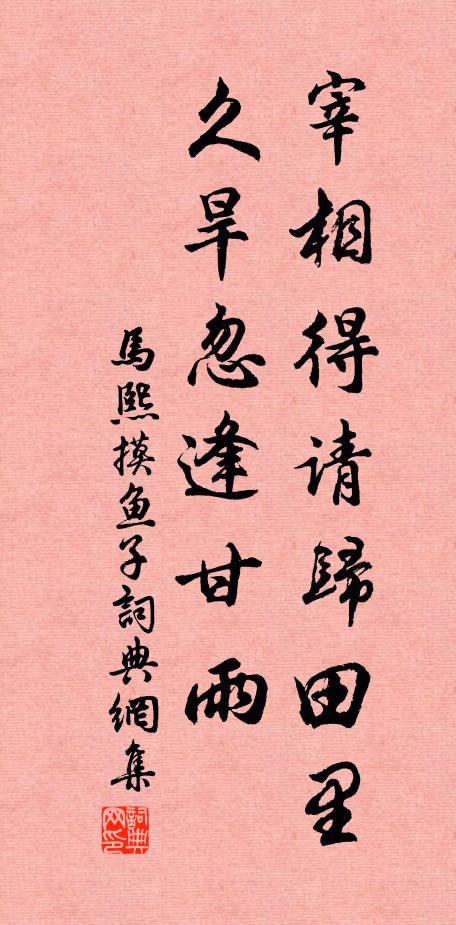 宰相得请歸田里
久旱忽逢甘雨
馬熙摸鱼子詞典網集
詞典网印